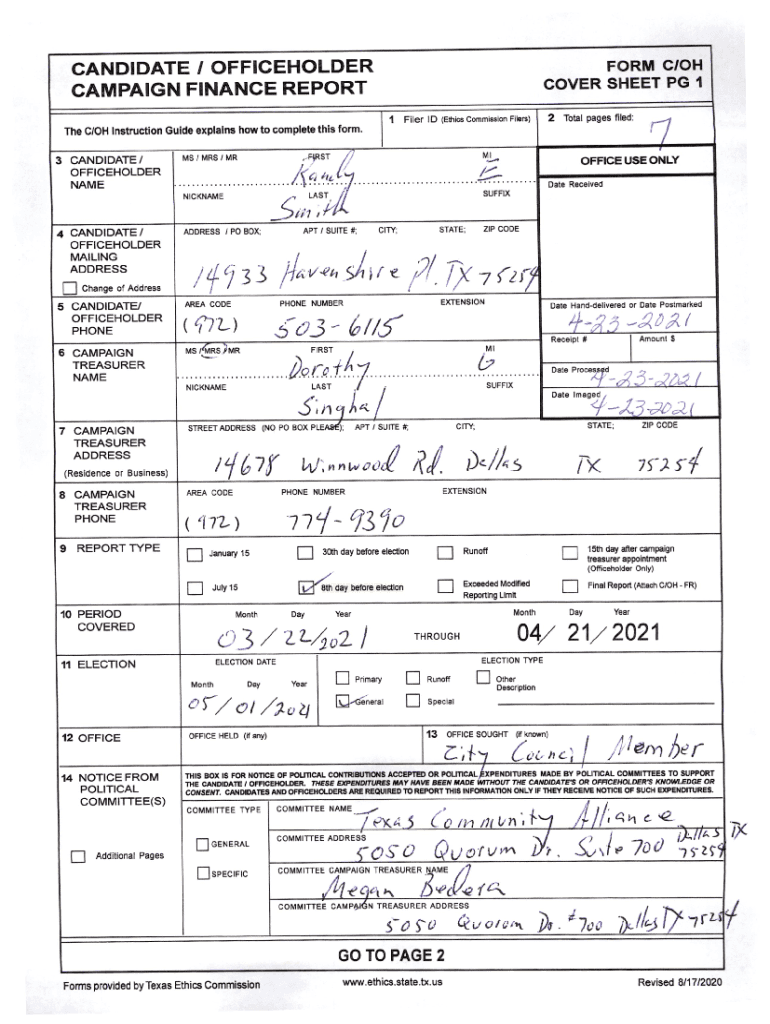 CANDIDATE / OFFICEHOLDER
CAMPAIGN FINANCE REPORT
FORM C/OH
COVER SHEET PG 1
The C/OH Instruction Guide explains how to complete this form.
1 Filer ID (Ethics Commission Filers)
2 Total pages filed:
7
3 CANDIDATE / OFFICEHOLDER NAME
MS / MRS / MR FIRST MI
Randy E
NICKNAME LAST SUFFIX
Smith
OFFICE USE ONLY
Date Received
4 CANDIDATE / OFFICEHOLDER MAILING ADDRESS
Change of Address
ADDRESS / PO BOX; APT / SUITE #; CITY; STATE; ZIP CODE
14933 Havenshire Pl. TX 75254
5 CANDIDATE/ OFFICEHOLDER PHONE
AREA CODE PHONE NUMBER EXTENSION
(972) 503-6115
Date Hand-delivered or Date Postmarked
4-23-2021
Receipt # Amount $
6 CAMPAIGN TREASURER NAME
MS / MRS / MR FIRST MI
Dorothy G
NICKNAME LAST SUFFIX
Singhal
Date Processed
4-23-2021
Date Imaged
4-23-2021
7 CAMPAIGN TREASURER ADDRESS
(Residence or Business)
STREET ADDRESS (NO PO BOX PLEASE); APT / SUITE #; CITY; STATE; ZIP CODE
14678 Winnwood Rd. Dallas TX 75254
8 CAMPAIGN TREASURER PHONE
AREA CODE PHONE NUMBER EXTENSION
(972) 774-9390
9 REPORT TYPE
January 15
30th day before election
Runoff
15th day after campaign treasurer appointment (Officeholder Only)
July 15
8th day before election
Exceeded Modified Reporting Limit
Final Report (Attach C/OH - FR)
10 PERIOD COVERED
Month Day Year
03/22/2021
THROUGH
Month Day Year
04/ 21/ 2021
11 ELECTION
ELECTION DATE
Month Day Year
05/01/2021
ELECTION TYPE
Primary
Runoff
Other Description
General
Special
12 OFFICE
OFFICE HELD (if any)
13 OFFICE SOUGHT (if known)
City Council Member
14 NOTICE FROM POLITICAL COMMITTEE(S)
Additional Pages
THIS BOX IS FOR NOTICE OF POLITICAL CONTRIBUTIONS ACCEPTED OR POLITICAL EXPENDITURES MADE BY POLITICAL COMMITTEES TO SUPPORT
THE CANDIDATE / OFFICEHOLDER. THESE EXPENDITURES MAY HAVE BEEN MADE WITHOUT THE CANDIDATE'S OR OFFICEHOLDER'S KNOWLEDGE OR
CONSENT. CANDIDATES AND OFFICEHOLDERS ARE REQUIRED TO REPORT THIS INFORMATION ONLY IF THEY RECEIVE NOTICE OF SUCH EXPENDITURES.
COMMITTEE TYPE
GENERAL
SPECIFIC
COMMITTEE NAME
Texas Community Alliance
COMMITTEE ADDRESS
5050 Quorum Dr. Suite 700 Dallas TX 75254
COMMITTEE CAMPAIGN TREASURER NAME
Megan Bedera
COMMITTEE CAMPAIGN TREASURER ADDRESS
5050 Quorom Dr. #700 Dallas TX 75254
GO TO PAGE 2
Forms provided by Texas Ethics Commission
www.ethics.state.tx.us
Revised 8/17/2020